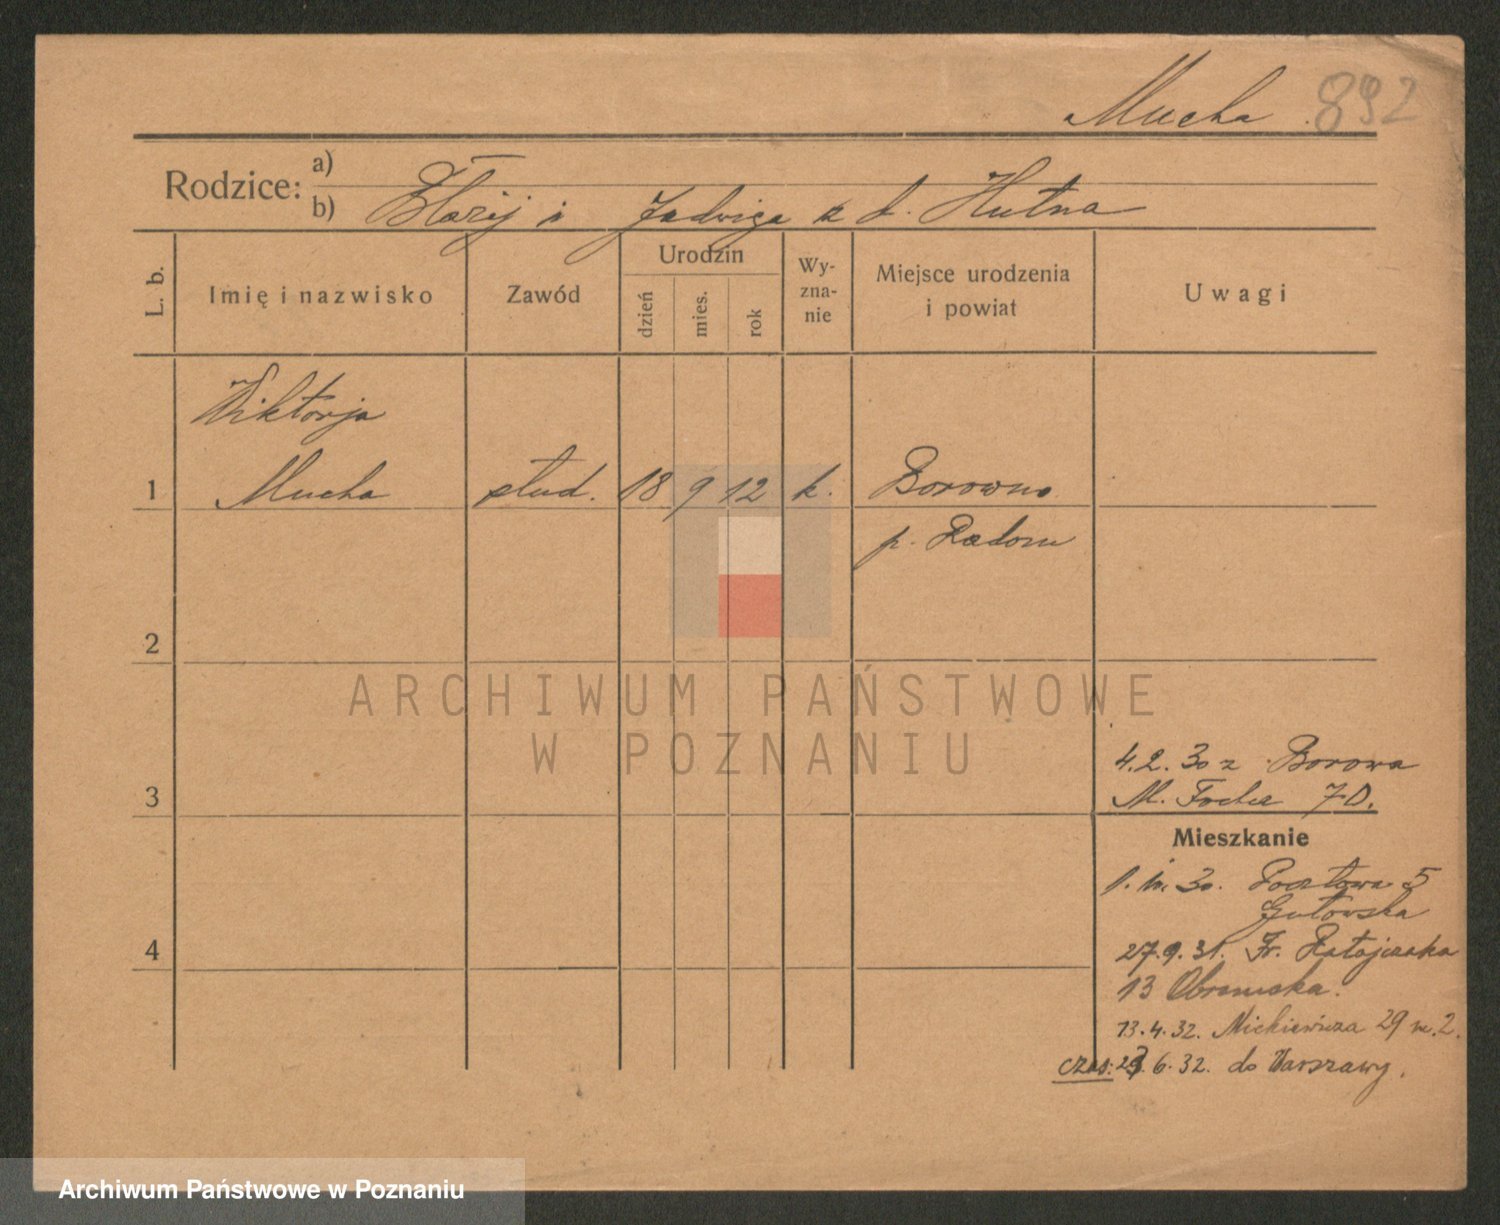 Mucha 892
Rodzice:
a)
b) Błażej i Jadwiga z d. Hutna
L. b.
Imię i nazwisko
Zawód
Urodzin
dzień
mies.
rok
Wy-
zna-
nie
Miejsce urodzenia
i powiat
Uwagi
Wiktorja
1 Mucha stud. 18 9 12 k. Borowno
p. Radom
2
ARCHIWUM PAŃSTWOWE
W POZNANIU
4.2.30 z Borowa
3 M. Focha 70.
Mieszkanie
30. Pocztowa 5
Gutowska
4 27.9.31. Fr. Ratajczaka
13
13.4.32. Mickiewicza 29 m. 2.
czas: 6.32. do Warszawy.
Archiwum Państwowe w Poznaniu